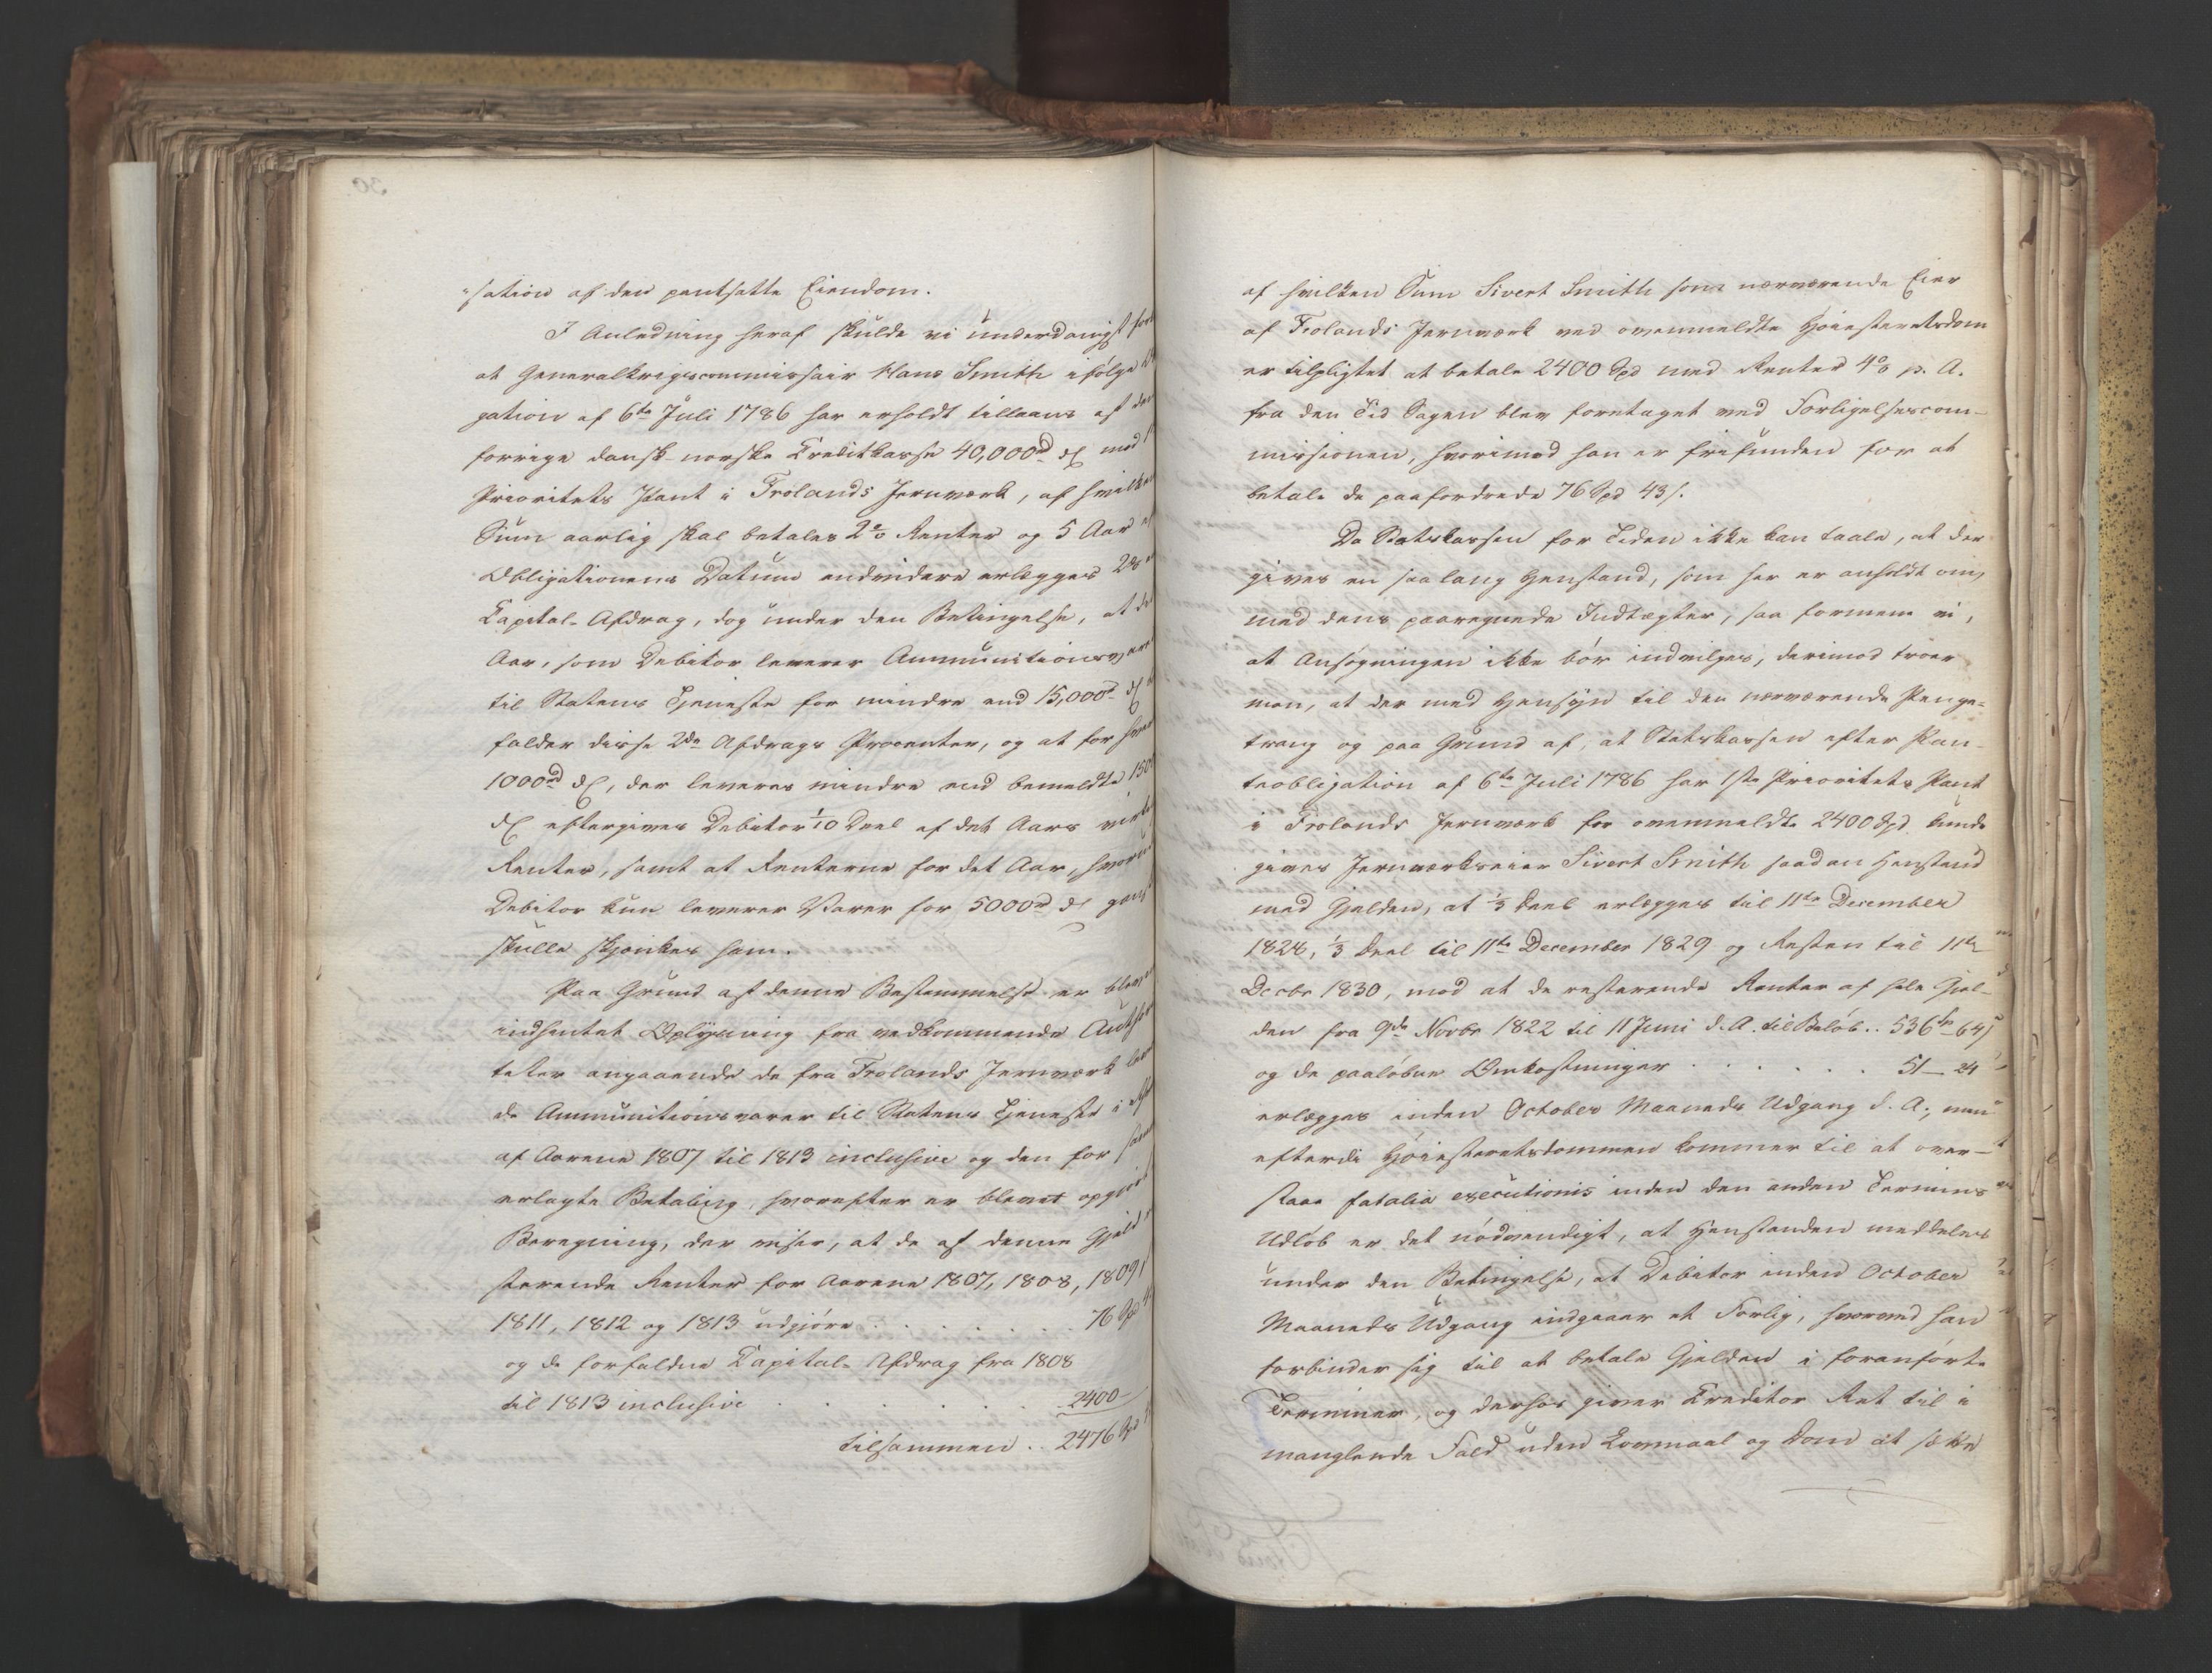 sation af den pantsatte Eiendom.
I Anledning heraf skulde vi underdanigst
at Generalkrigscommissair Hans Smith ifølge
gation af 6te Juli 1786 har erholdt tillaans af den
forrige dansk-norske Creditkasse 40,000rd dC mod
Prioritets Pant i Frolands Jernværk, af hvilken
Sum aarlig skal betales 2% Renter og 5 Aar
Obligationens Datum endvidere erlægges 2%
Capital-Afdrag, dog under den Betingelse, at de
Aar, som Debitor leverer Ammunitionsvarer
til Statens Tjeneste for mindre end 15,000rd dC
falder disse 2de Afdrags Procenter, og at for hver
1000rd dC, der leveres mindre end bemeldte
dC eftergives Debitor 1/10 Deel af det Aars
Renter, samt at Renterne for det Aar, hvori
Debitor kun leverer Varer for 5000rd dC
skulle skjænkes ham.
Paa Grund af denne Bestemmelse er bleven
indhentet Oplysning fra vedkommende
teter angaaende de fra Frolands Jernværk
de Ammunitionsvarer til Statens Tjeneste i
af Aarene 1807 til 1813 inclusive og den for
erlagte Betaling, hvorefter er blevet opgjort
Beregning, der viser, at de af denne Gjeld
sterende Renter for Aarene 1807, 1808, 1809
1811, 1812 og 1813 udgjøre . . . . . . . 76 Spd
og de forfaldne Capital-Afdrag fra 1808
til 1813 inclusive . . . . . . 2400 —
tilsammen . . 2476 Spd
af hvilken Sum Sivert Smith som nærværende Eier
af Frolands Jernværk ved ovenmeldte Høiesteretsdom
er tilpligtet at betale 2400 Spd med Renter 4% p. A.
fra den Tid Sagen blev foretaget ved Forligelsescom-
missionen, hvorimod han er frifunden for at
betale de paafordrede 76 Spd 43 s.
Da Statskassen for Tiden ikke kan taale, at der
gives en saa lang Henstand, som her er anholdt om,
med dens paaregnede Indtægter, saa formene vi,
at Ansøgningen ikke bør indvilges, derimod troer
man, at der med Hensyn til den nærværende Penge-
trang og paa Grund af, at Statskassen efter Pan-
teobligation af 6te Juli 1786 har 1ste Prioritets Pant
i Frolands Jernværk for ovenmeldte 2400 Spd kunde
gives Jernværkseier Sivert Smith saadan Henstand
med Gjelden, at 1/3 Deel erlægges til 11te December
1828, 1/3 Deel til 11te December 1829 og Resten til 11te
Decbr 1830, mod at de resterende Renter af hele Gjel-
den fra 9de Novbr 1822 til 11 Juni d. A. til Beløb . . 536 Sp 64 s
og de paaløbne Omkostninger . . . . . . 51 — 24
erlægges inden October Maaneds Udgang d. A., men
efterdi Høiesteretsdommen kommer til at over-
staae fatalia executionis inden den anden Termins
Udløb er det nødvendigt, at Henstanden meddeles
under den Betingelse, at Debitor inden October
Maaneds Udgang indgaaer et Forlig, hvorved han
forbinder sig til at betale Gjelden i foranførte
Terminer, og derhos giver Creditor Ret til i
manglende Fald uden Lovmaal og Dom at søke